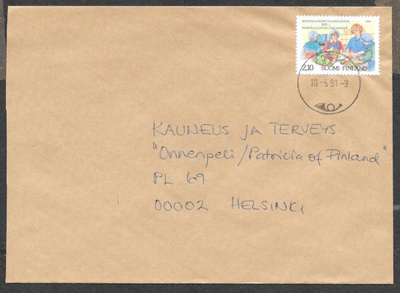 2,10 SUOMI FINLAND
10-5.91-9
KAUNEUS JA TERVEYS
"Onnenpeli/Patricia of Finland"
PL 69
00002 HELSINKI